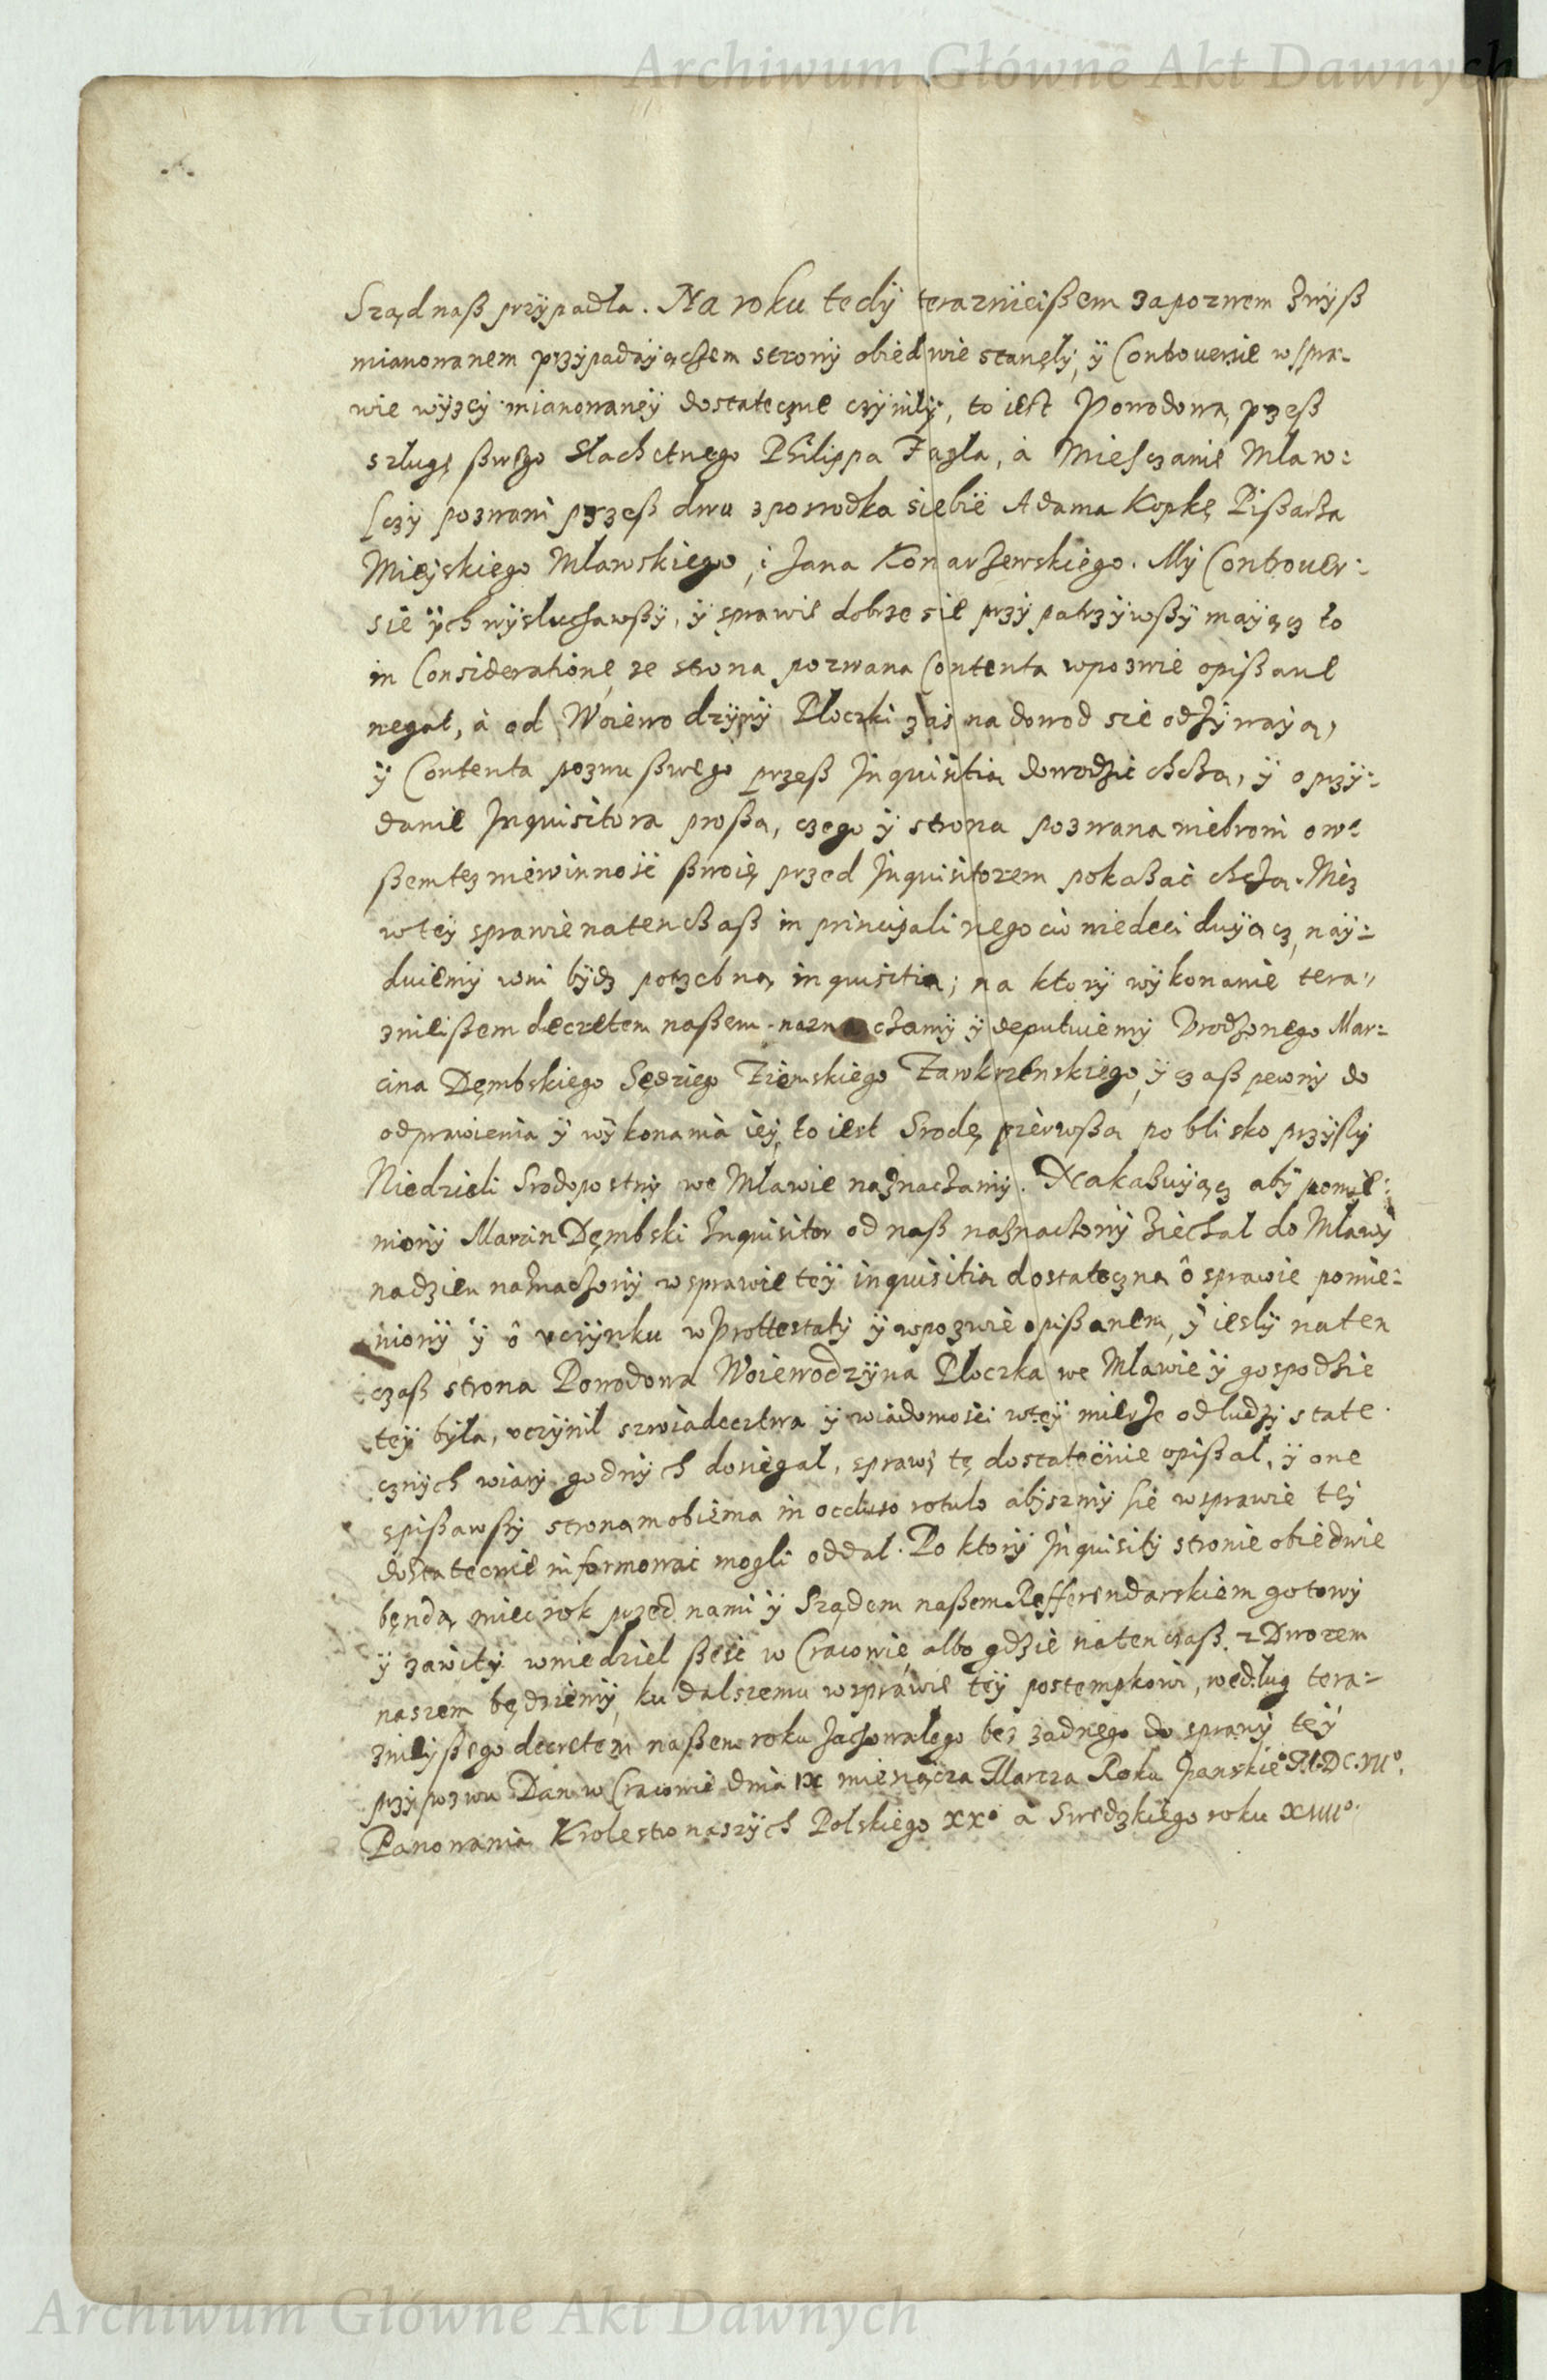 Archiwum Główne Akt Dawnych
Sząd naß przypadła. Na roku tedÿ teraznieißem zapozwem zwÿß
mianowanem przÿpadaÿączem stronÿ obiedwie stanęlÿ, ÿ Controuersie w spra:
wie wÿzeÿ mianowaneÿ dostateczne czÿnilÿ, to iest Powodowa przeß
szługę ßwego Slachetnego Philippa Zagla, à Miesczanie Mlaw:
sczÿ pozwani przeß dwu zposrodka siebie Adama Kopkę Pißarza
Mieÿskiego Mlawskiego, i Jana Konarzewskiego. Mÿ Controuer:
sie ÿch wÿsłuchawßÿ, ÿ sprawie dobrze sie przÿpatrzÿwßÿ maÿącz to
in Consideratione, ze strona pozwana Contenta wpozwie opißane
negat, à od Woiewodzÿnÿ Płoczki zas na dowod sie odzÿwaÿą,
ÿ Contenta pozwu ßwego przeß Inquisitią dowodzic chczą, ÿ o przÿ:
danie Inquisitora proßą, czego ÿ strona pozwana niebroni ow:
ßem tez niewinnosć ßwoię przed Inquisitorem pokazać chczą. Mÿ
w teÿ sprawie natenczaß in principali negocio niedecÿduÿącz, naÿ:
duiemÿ wni bÿdz potrzebną inquisitią; na ktorÿ wÿkonanie tera:
znieißem decretem naßem naznaczamÿ ÿ deputuiemÿ Vrodzonego Mar:
cina Dęmbskiego Sędziego Ziemskiego Zawkrzenskiego, ÿ czaß pewnÿ do
odprawienia ÿ wÿkonania ieÿ, to iest Srodę pierwßą po blisko przÿslÿ
Niedzieli Srodopostnÿ we Mlawie naznaczamÿ. Nakazuÿącz abÿ pomie:
nionÿ Marcin Dęmbski Inquisitor od naß naznaczonÿ ziechal do Mlawÿ
nadzien naznaczonÿ w sprawie teÿ inquisitią dostateczną ô sprawie pomie:
nionÿ ÿ ô vczÿnku w Prottestatÿ ÿ wpozwie opißanem, ÿ ieslÿ naten
czaß strona Powodowa Woiewodzÿna Płoczka we Mlawie ÿ gospodzie
teÿ bÿła, vczÿnil szwiadecztwa ÿ wiadomosci wteÿ mierze od ludzÿ state
cznÿch wiarÿ godnÿch dosiegal, sprawę tę dostatecznie opißal, ÿ one
spißawßÿ stronam obiema in occluso rotulo abÿszmÿ sie w sprawie teÿ
dostatecnie informowac mogli oddal. Po ktorÿ Inquisitÿ stronie obiedwie
bęndą miec rok przed nami ÿ Sządem naßem Refferendarskiem gotowÿ
ÿ zawitÿ wniedziel ßesc w Cracowie, albo gdzie natenczaß z Dworem
naszem będziemÿ, ku dalszemu wsprawie teÿ postempkowi, według tera:
znieÿßego decretem naßem roku zachowałego bez zadnego do sprawÿ teÿ
przÿpozwu Dan w Cracowie dnia IX miesiącza Marcza Roku Panskiego M.DC.VII°.
Panowania Krolestw naszÿch Polskiego XX° a Swedzkiego roku XIIII°.
Archiwum Główne Akt Dawnych